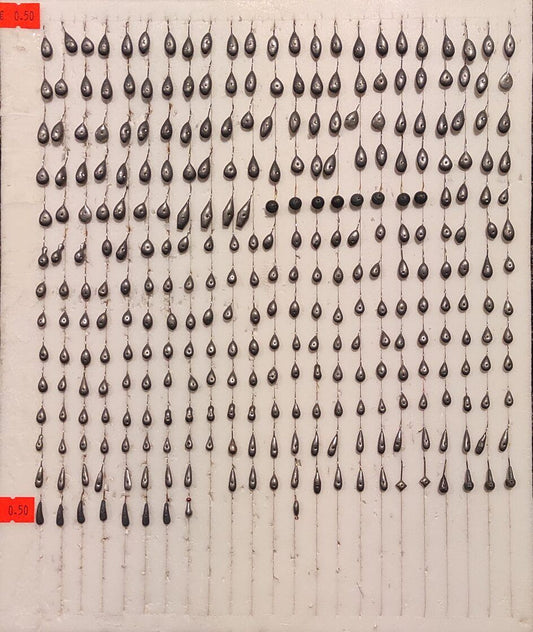 € 0.50
0.50